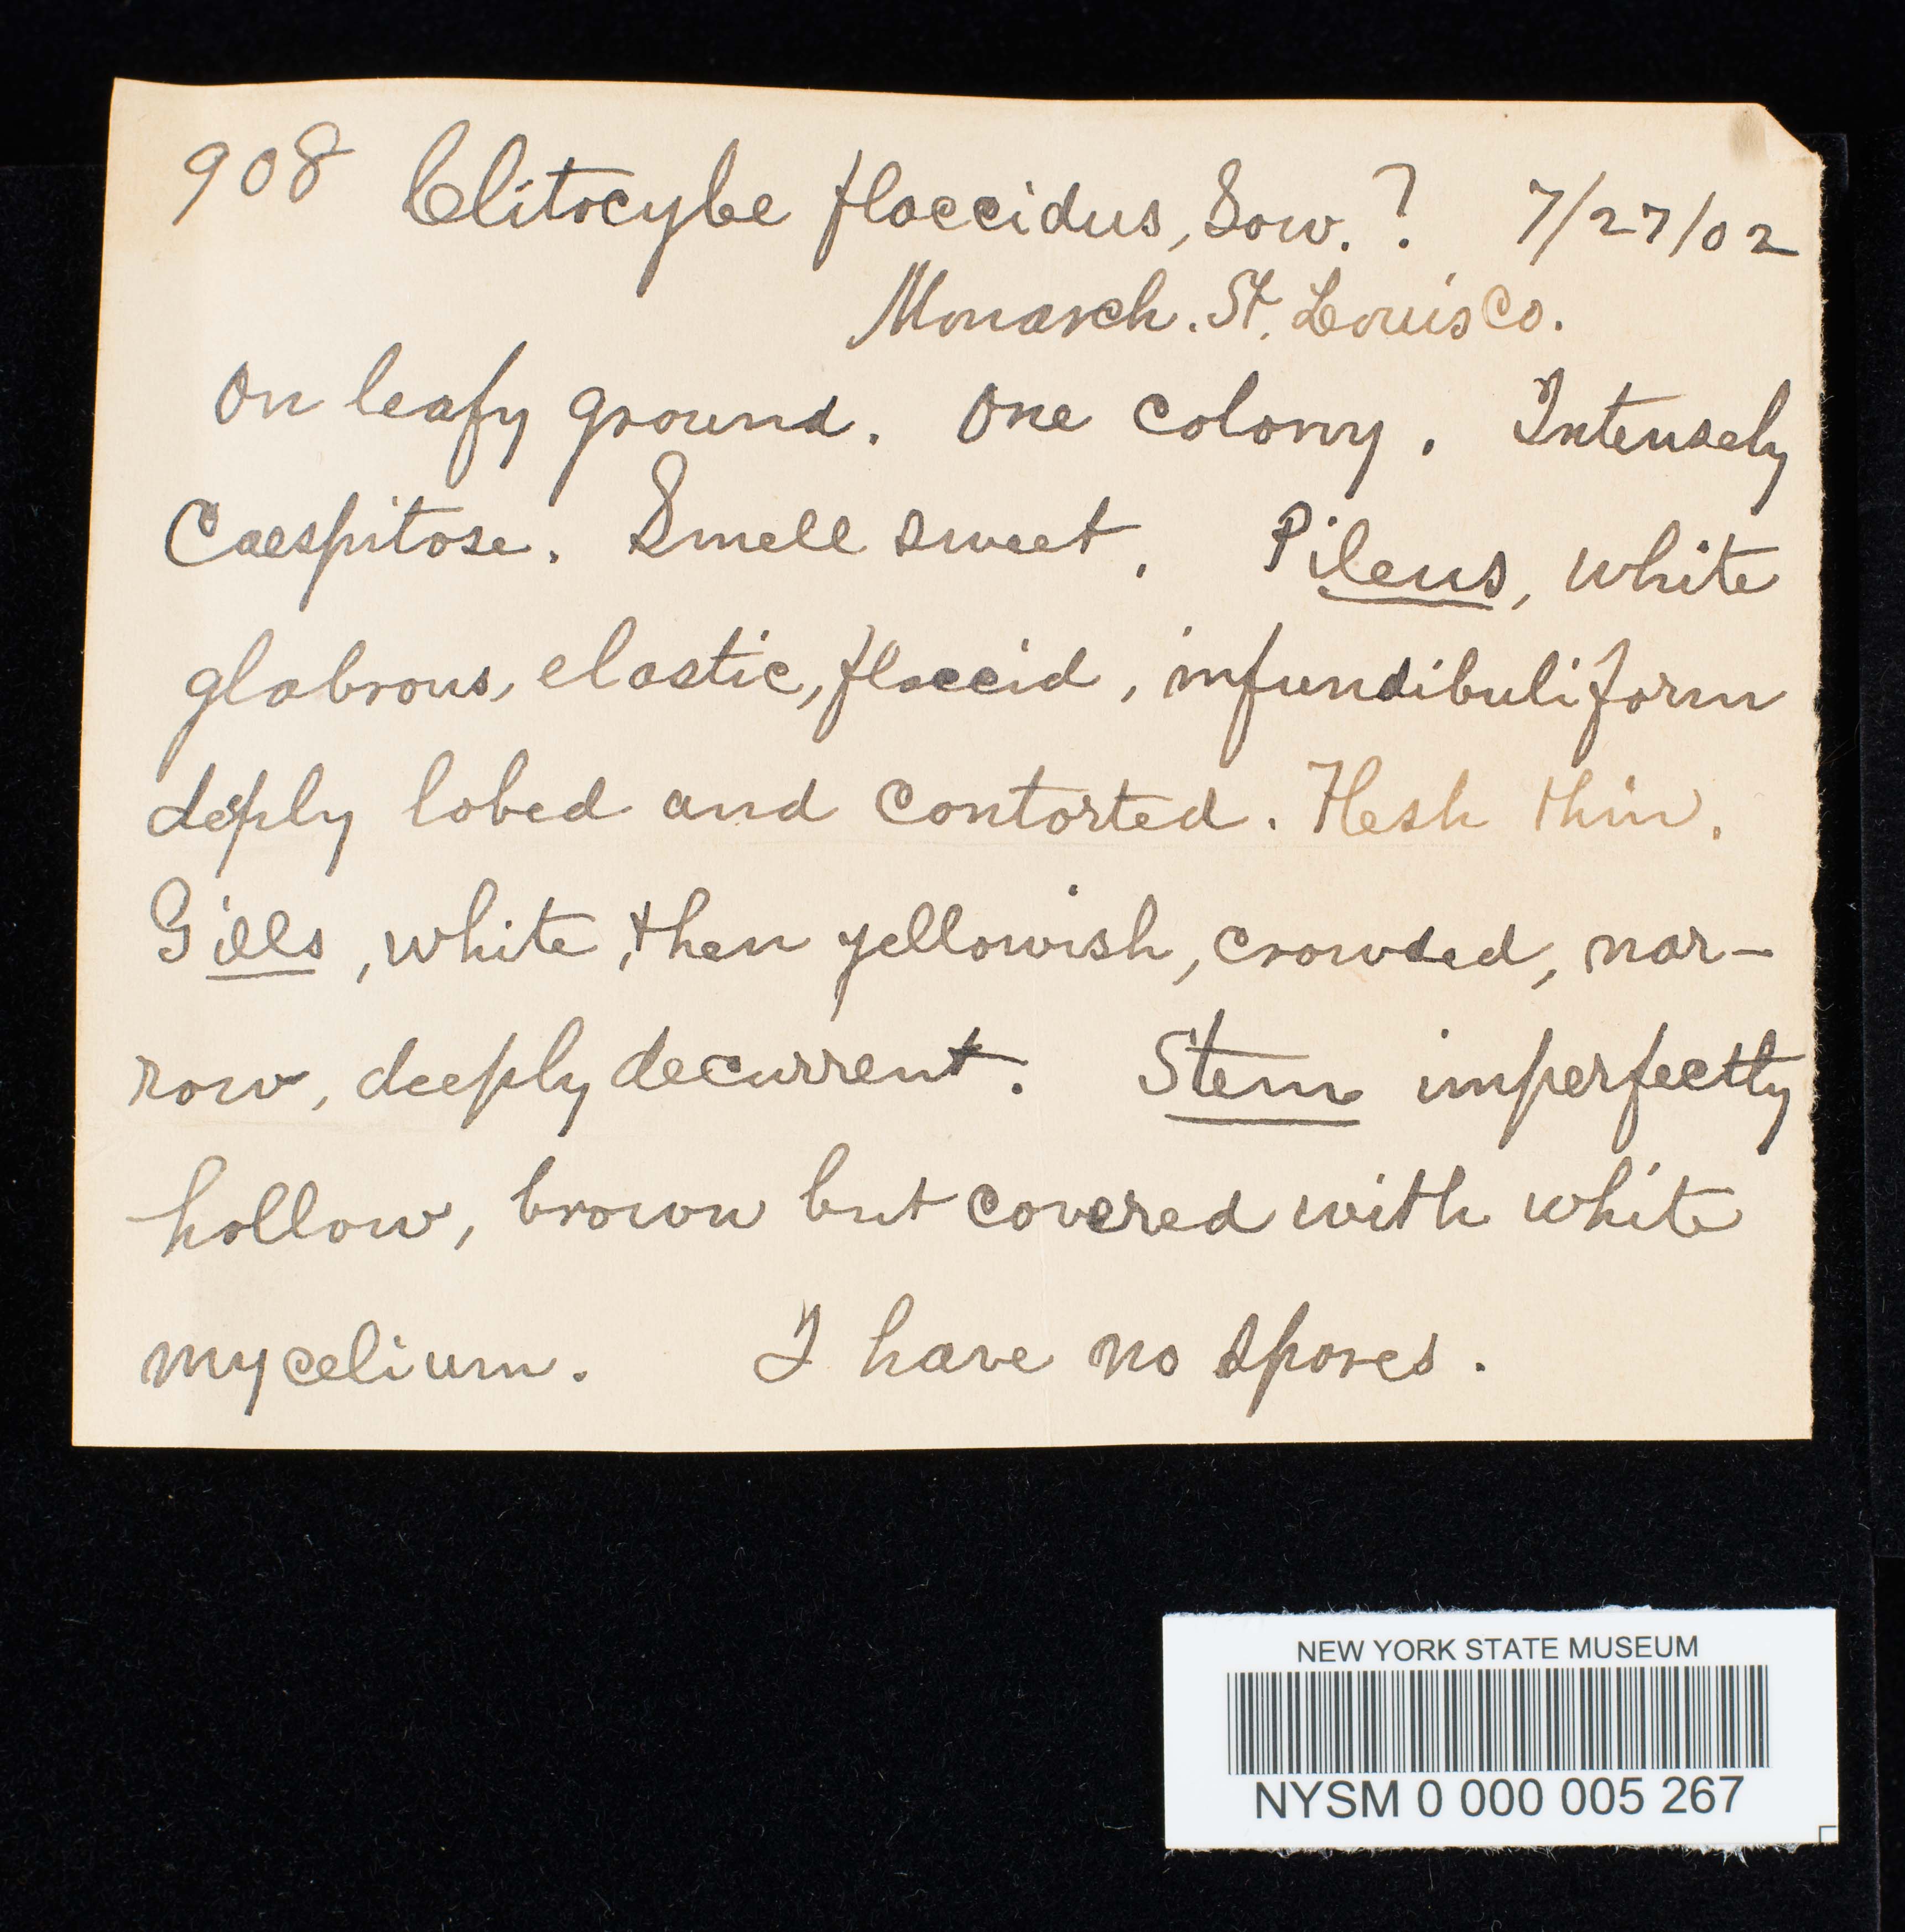 908 Clitocybe flaccidus, Sow. ? 7/27/02
Monarch. St. Louis Co.
On leafy ground. One colony. Intensely
Caespitose. Smell sweet. Pileus, white
glabrous, elastic, flaccid, infundibuliform
deeply lobed and contorted. Flesh thin.
Gills, white, then yellowish, crowded, nar-
row, deeply decurrent. Stem imperfectly
hollow, brown but covered with white
mycelium. I have no spores.
NEW YORK STATE MUSEUM
NYSM 0 000 005 267